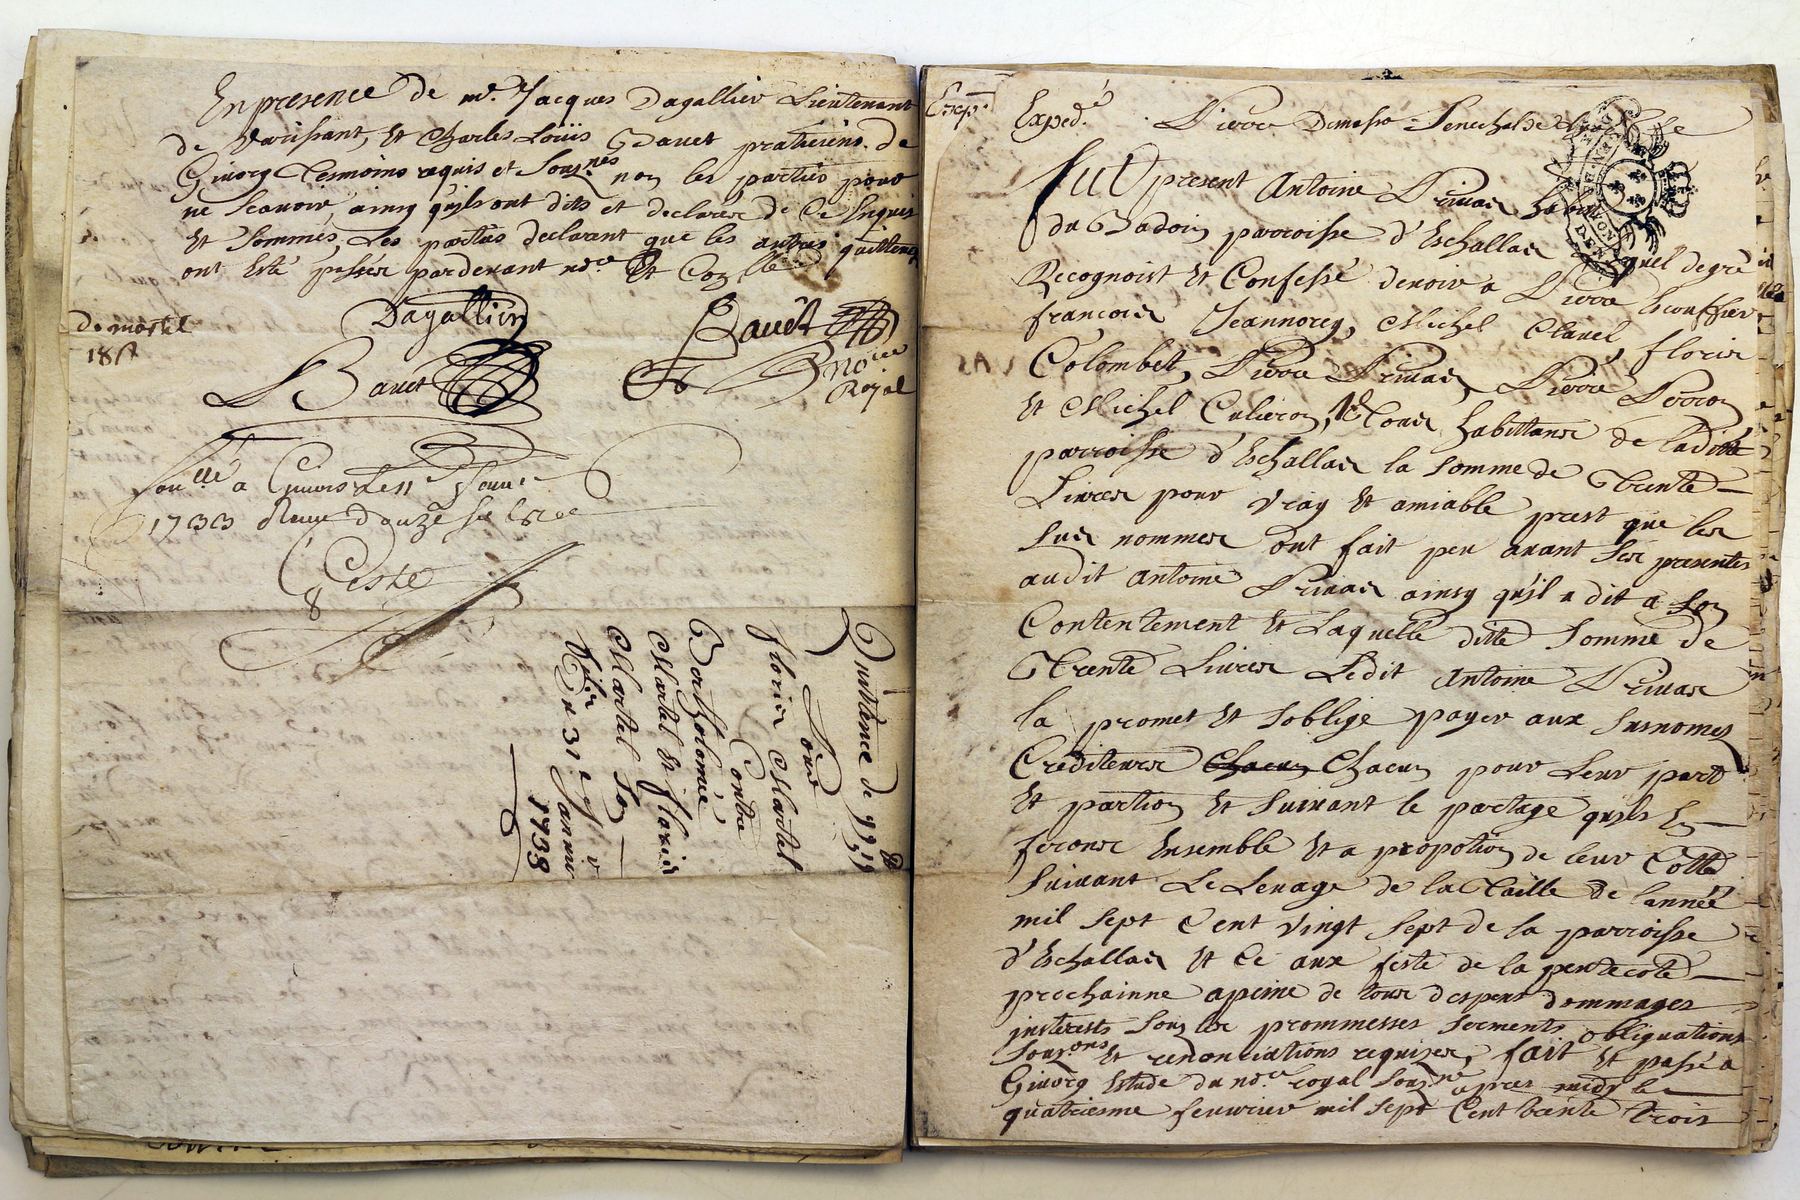 En presence de me. Jacques Dagallier Lieutenant
de Varissant, Et Charles Loüis Bauet praticiens de
Giuorg Tesmoins requis et Souz.nes non les parties pour
ne Scauoir, ainsy qu'ils ont dits et declarer de Ce Enquis
Et Sommés, Les parties declarant que les autres quittences
ont Esté passés pardeuant ndre Et
Dagallier
Bauet
No.re
Royal
de martel
Bauet
a Giuors Le
1733 Reçu douze
Quittence de
Contre
florin Martel
Bartholomé
Martel Et florin
Martel
Du 31e Januier
1733
Exp.
Exped.é
Pierre
fut present Antoine Priuas
du Badoin parroisse d'Eschallas quel de gré
Recognoist Et Confesse deuoir a Pierre Escoffier
francois Jeannorey, Michel Clauel florin
Colombet, Pierre Priuas, Pierre Perron
Et Michel Culieron, Tous habittans de laditte
parroisse d'Eschallas la Somme de Trente
Liures pour Vray Et amiable prest que les
Sus nommes ont fait peu auant Ses presentes
audit Antoine Priuas ainsy qu'il a dit a Son
Contentement Et Laquelle ditte Somme de
Trente Liures Ledit Antoine Priuas
la promet Et Soblige payer aux Susnomes
Crediteurs Chacun Chacun pour Leur part
Et partion Et Suiuant le partage qu'ils En
feront Ensemble Et a propotion de leur Cotte
Suiuant Le Leuage de la Taille de lannéé
mil Sept Cent Vingt Sept de la parroisse
d'Eschallas Et Ce aux feste de la pentecote
prochainne apeine de tous despens dommages
insterests Souz les prommesses Serments obliguations
Souz.ons Et renonciations requises, fait Et passé a
Giuorg Estude du nd.re royal Souz.né apres midy le
quatriesme feurier mil Sept Cent trente trois